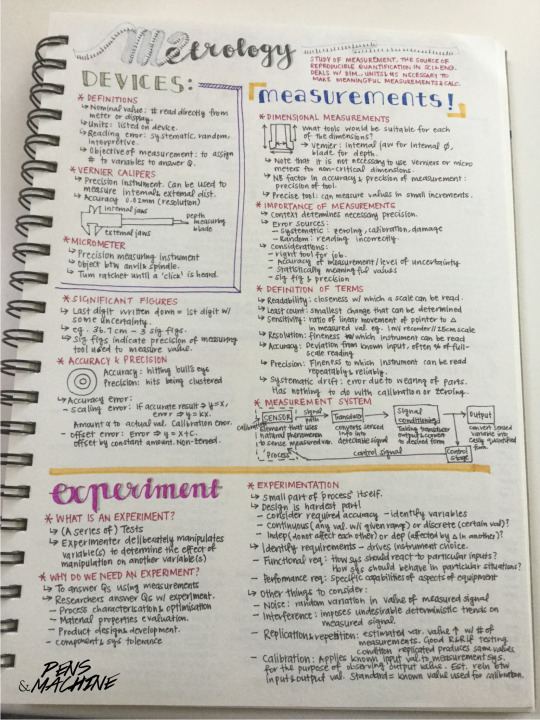 Metrology
STUDY OF MEASUREMENT, THE SOURCE OF
REPRODUCIBLE QUANTIFICATION IN SCI & ENG.
DEALS W/ DIM., UNITS & #S NECESSARY TO
MAKE MEANINGFUL MEASUREMENTS & CALC.
DEVICES:
* DEFINITIONS
↳ Nominal value: # read directly from
meter or display.
↳ Units: listed on device.
↳ Reading error: systematic, random,
interpretive.
↳ Objective of measurement: to assign
# to variables to answer Q.
* VERNIER CALIPERS
↳ Precision instrument. Can be used to
measure internal & external dist.
↳ Accuracy 0.02mm (resolution)
internal jaws
depth
measuring
blade
external jaws
* MICROMETER
↳ Precision measuring instrument
↳ Object btw anvil & spindle.
↳ Turn ratchet until a 'click' is heard.
* SIGNIFICANT FIGURES
↳ Last digit written down = 1st digit w/
some uncertainty.
↳ eg. 36.7cm - 3 sig figs.
↳ Sig figs indicate precision of measuring
tool used to measure value.
* ACCURACY & PRECISION
Accuracy: hitting bull's eye
Precision: hits being clustered
↳ Accuracy error:
- scaling error: if accurate result ⇒ y=x,
error ⇒ y=kx.
Amount ∝ to actual val. Calibration error.
- offset error: Error ⇒ y=x+c.
offset by constant amount. Non-zeroed.
measurements!
* DIMENSIONAL MEASUREMENTS
What tools would be suitable for each
of the dimensions?
↳ Vernier: internal jaw for internal ø,
blade for depth.
↳ Note that it is not necessary to use verniers or micro
meters for non-critical dimensions.
↳ NB factor in accuracy & precision of measurement:
precision of tool.
↳ Precise tool: can measure values in small increments.
* IMPORTANCE OF MEASUREMENTS
↳ Context determines necessary precision.
↳ Error sources:
- systematic: zeroing, calibration, damage
- Random: reading incorrectly.
↳ Considerations:
- right tool for job.
- accuracy of measurement/level of uncertainty
- statistically meaningful values
- sig fig & precision
* DEFINITION OF TERMS
↳ Readability: closeness w/ which a scale can be read.
↳ Least count: smallest change that can be determined
↳ Sensitivity: ratio of linear movement of pointer to Δ
in measured val. eg. 1mV recorder/25cm scale
↳ Resolution: fineness to which instrument can be read
↳ Accuracy: Deviation from known input, often % of full-
scale reading
↳ Precision: Fineness to which instrument can be read
repeatably & reliably.
↳ Systematic drift: error due to wearing of parts.
Has nothing to do with calibration or zeroing.
* MEASUREMENT SYSTEM
calibration
CENSOR
Element that uses
natural phenomenon
to sense measured var.
Process
signal
path
Transducer
converts sensed
info into
detectable signal
Signal
conditioning
Taking transducer
output & convert
to desired form
Output
convert sensed
variable into
easily quantified
form.
control signal
Control
stage
experiment
* WHAT IS AN EXPERIMENT?
↳ (A series of) Tests
↳ Experimenter deliberately manipulates
variable(s) to determine the effect of
manipulation on another variable(s)
* WHY DO WE NEED AN EXPERIMENT?
↳ To answer Qs using measurements
↳ Researchers answer Qs w/ experiment.
- Process characterisation & optimisation
- Material properties evaluation.
- Product design & development.
- component & sys tolerance
* EXPERIMENTATION
↳ small part of process itself.
↳ Design is hardest part!
- consider required accuracy - identify variables
- Continuous (any val. w/i given range) or discrete (certain val)?
- Indep (do not affect each other) or dep (affected by Δ in another)?
↳ Identify requirements - drives instrument choice.
- Functional req: How sys should react to particular inputs?
How sys should behave in particular situations?
- Performance req: specific capabilities of aspects of equipment
↳ Other things to consider:
- Noise: random variation in value of measured signal
- Interference: imposes undesirable deterministic trends on
measured signal.
- Replication & repetition: estimated var. value ↑ w/ # of
measurements. Good R&R if testing
condition replicated produces same values
- Calibration: Applies known input val. to measurement sys.
for the purpose of observing output value. Est. reln btw
input & output val. Standard = known value used for calibration.
PENS
& MACHINE